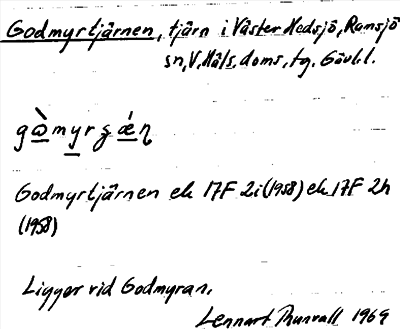 Godmyrtjärnen, tjärn i Väster Hedsjö, Ramsjö
sn, V. Häls. doms., tg. Gävl. l.
Godmyrtjärnen ek 17F 2i (1958) ek 17F 2h
(1958)
Ligger vid Godmyran.
Lennart Thunvall 1969